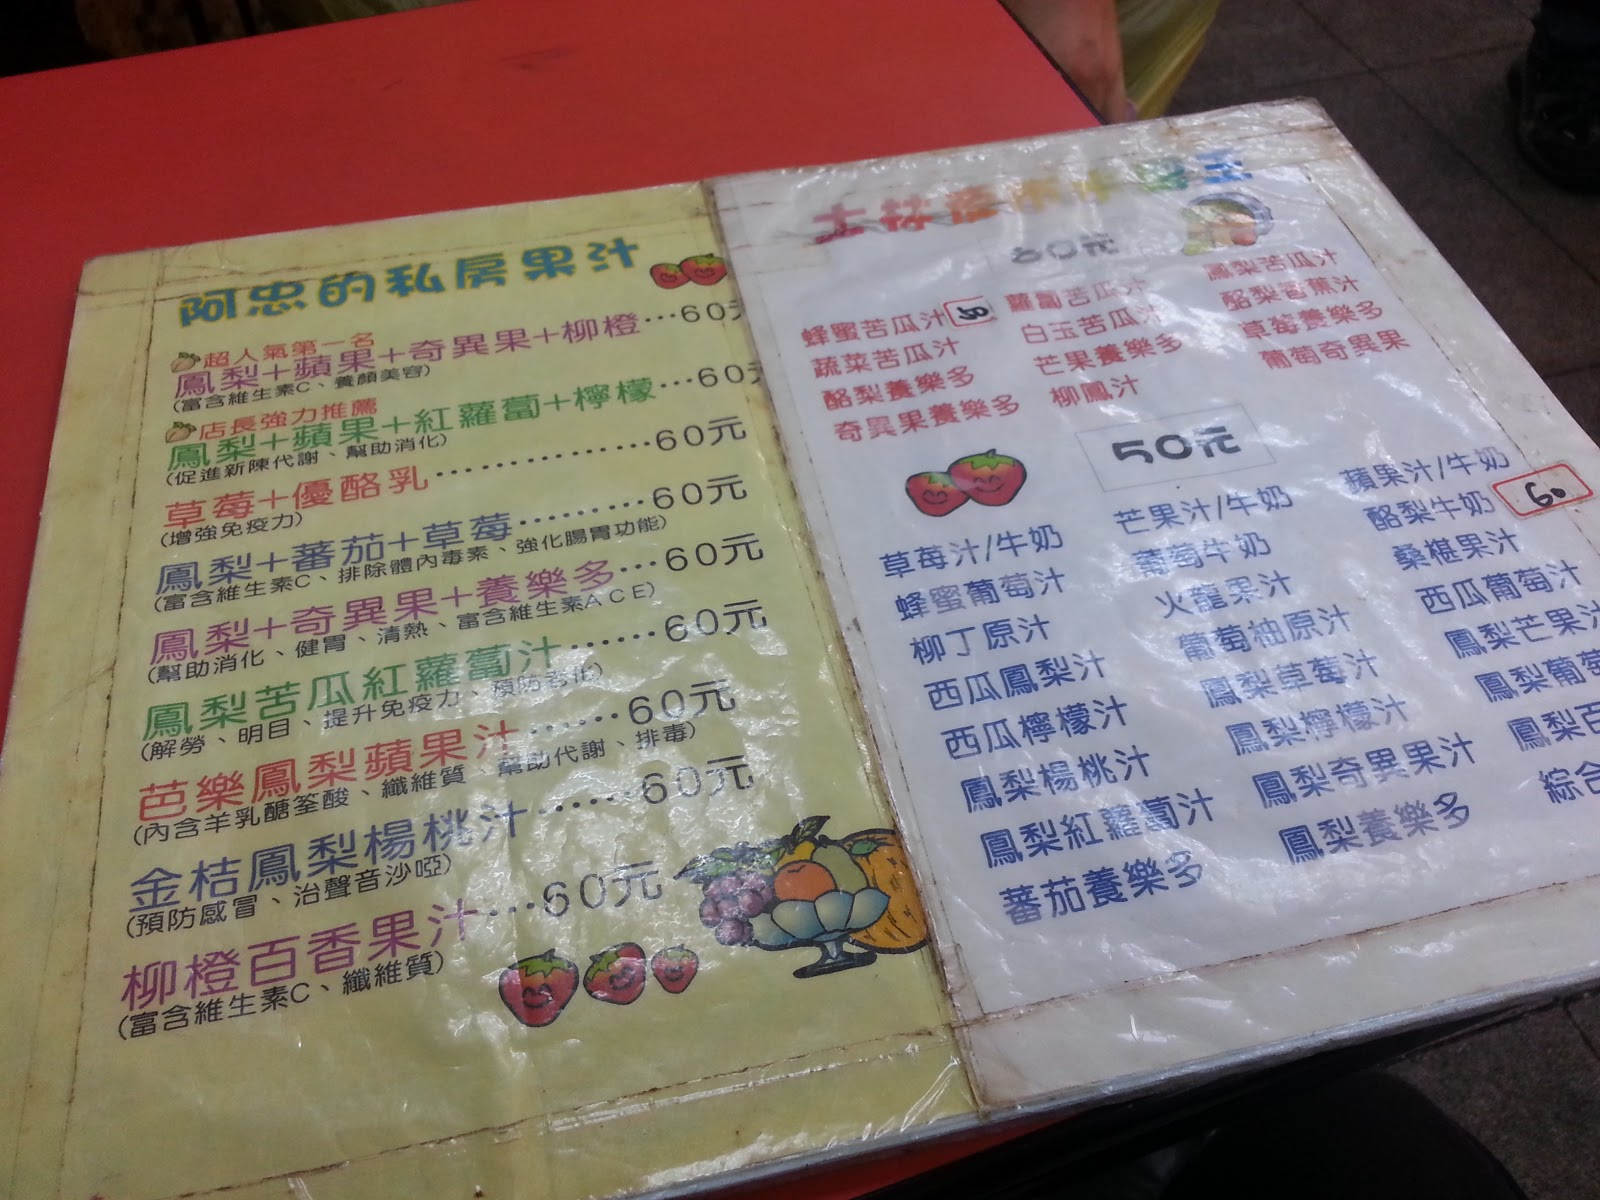 阿忠的私房果汁
超人氣第一名
鳳梨+蘋果+奇異果+柳橙…60元
(富含維生素C、養顏美容)
店長強力推薦
鳳梨+蘋果+紅蘿蔔+檸檬…60元
(促進新陳代謝、幫助消化)
草莓+優酪乳……………60元
(增強免疫力)
鳳梨+蕃茄+草莓………60元
(富含維生素C、排除體內毒素、強化腸胃功能)
鳳梨+奇異果+養樂多…60元
(幫助消化、健胃、清熱、富含維生素ACE)
鳳梨苦瓜紅蘿蔔汁……60元
(解勞、明目、提升免疫力、預防老化)
芭樂鳳梨蘋果汁……60元
(內含羊乳醣筌酸、纖維質、幫助代謝、排毒)
金桔鳳梨楊桃汁……60元
(預防感冒、治聲音沙啞)
柳橙百香果汁…60元
(富含維生素C、纖維質)
士林
60元
蜂蜜苦瓜汁 50 蘿蔔苦瓜汁 鳳梨苦瓜汁
蔬菜苦瓜汁 白玉苦瓜汁 酪梨香蕉汁
酪梨養樂多 芒果養樂多 草莓養樂多
奇異果養樂多 柳鳳汁 葡萄奇異果
50元
草莓汁/牛奶 芒果汁/牛奶 蘋果汁/牛奶
蜂蜜葡萄汁 葡萄牛奶 酪梨牛奶 60
柳丁原汁 火龍果汁 桑椹果汁
西瓜鳳梨汁 葡萄柚原汁 西瓜葡萄汁
西瓜檸檬汁 鳳梨草莓汁 鳳梨芒果汁
鳳梨楊桃汁 鳳梨檸檬汁 鳳梨葡萄
鳳梨紅蘿蔔汁 鳳梨奇異果汁 鳳梨百
蕃茄養樂多 鳳梨養樂多 綜合